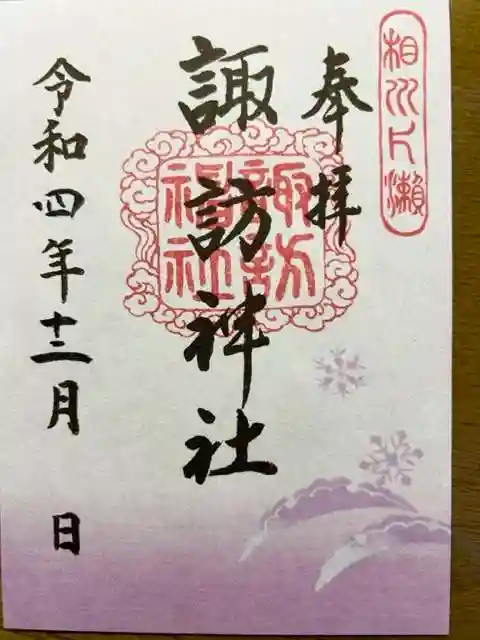 相州片瀬
奉拝
諏訪神社
諏訪
神社
令和四年十二月 日